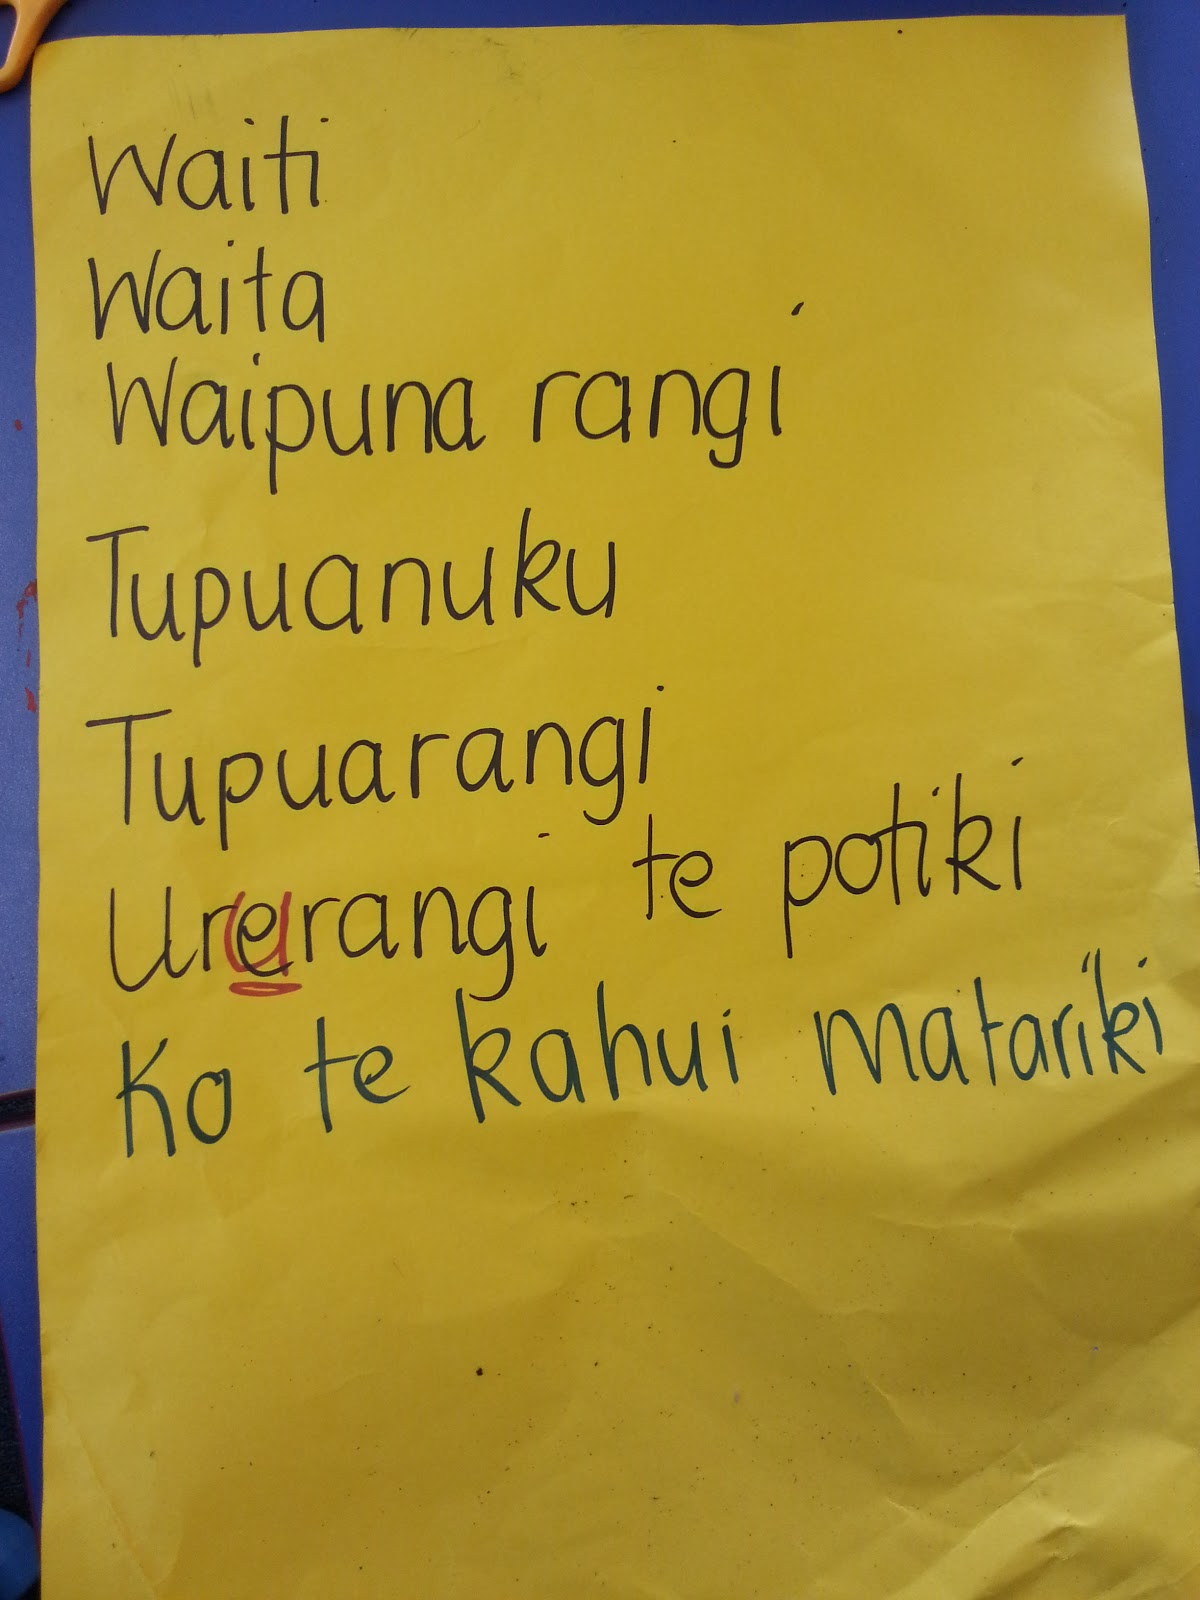 Waiti
Waita
Waipuna rangi
Tupuanuku
Tupuarangi
Ururangi te potiki
Ko te kahui matariki